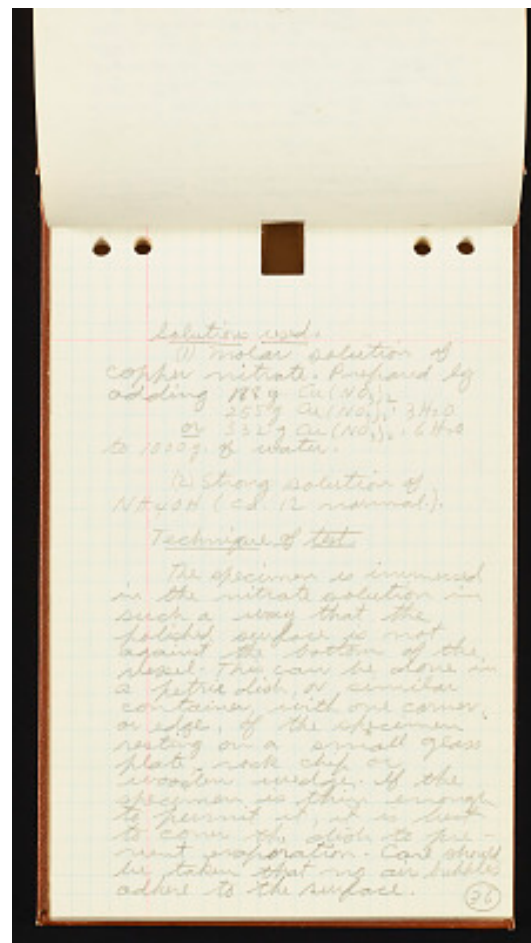 Solutions used.
(1) Molar solution of
copper nitrate. Prepared by
adding 188 g Cu(NO3)2
255 g Cu(NO3)2 . 3H2O
or 332 g Cu(NO3)2 . 6H2O
to 1000 g. of water.
(2) Strong solution of
NH4OH ( 12 normal).
Technique of test
The specimen is immersed
in the nitrate solution in
such a way that the
polished surface is not
against the bottom of the
vessel. This can be done in
a petrie dish, or similar
container, with one corner,
or edge, of the specimen
resting on a small glass
plate, rock chip or
wooden wedge. If the
specimen is thin enough
to permit it, it is best
to cover the dish to pre-
vent evaporation. Care should
be taken that no air bubbles
adhere to the surface.
36